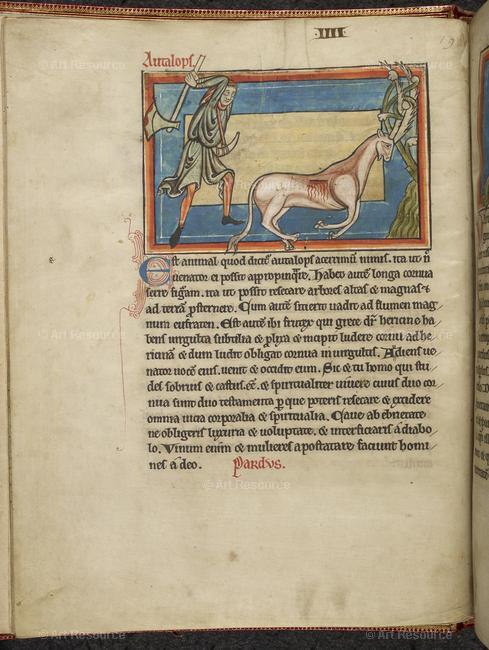 IIII
19
Autalops.
Est animal quod dicit autalops acerrimum nimis. ita ut n
uenator ei possit appropinqre. Habet aute longa cornua
serre figuram. ita ut possit resecare arbores altas & magnas &
ad terra psternere. Cum aute sitierit uadit ad flumen mag
num eufraten. Est aute ibi frutex qui grece dr hericine ha
bens uirgulta subtilia & plixa & incipit ludere cornu ad he
ricina & dum ludit obligat cornua in uirgultis. Audiens ue
nator uoce eius. uenit & occidit eum. Sic & tu homo qui stu
des sobrius & castus ee. & spiritualiter uiuere cuius duo cor
nua sunt duo testamenta p que poteris resecare & excidere
omnia uicia corporalia & spiritualia. Caue ab ebrietate
ne obligeris luxuria & uoluptate. & interficiaris a diabo
lo. Vinum enim & mulieres apostatare faciunt homi
nes a deo. Pardus.
© Art Resource
© Art Resource
© Art Resource
© Art Resource
© Art Resource
© Art Resource
© Art Resource